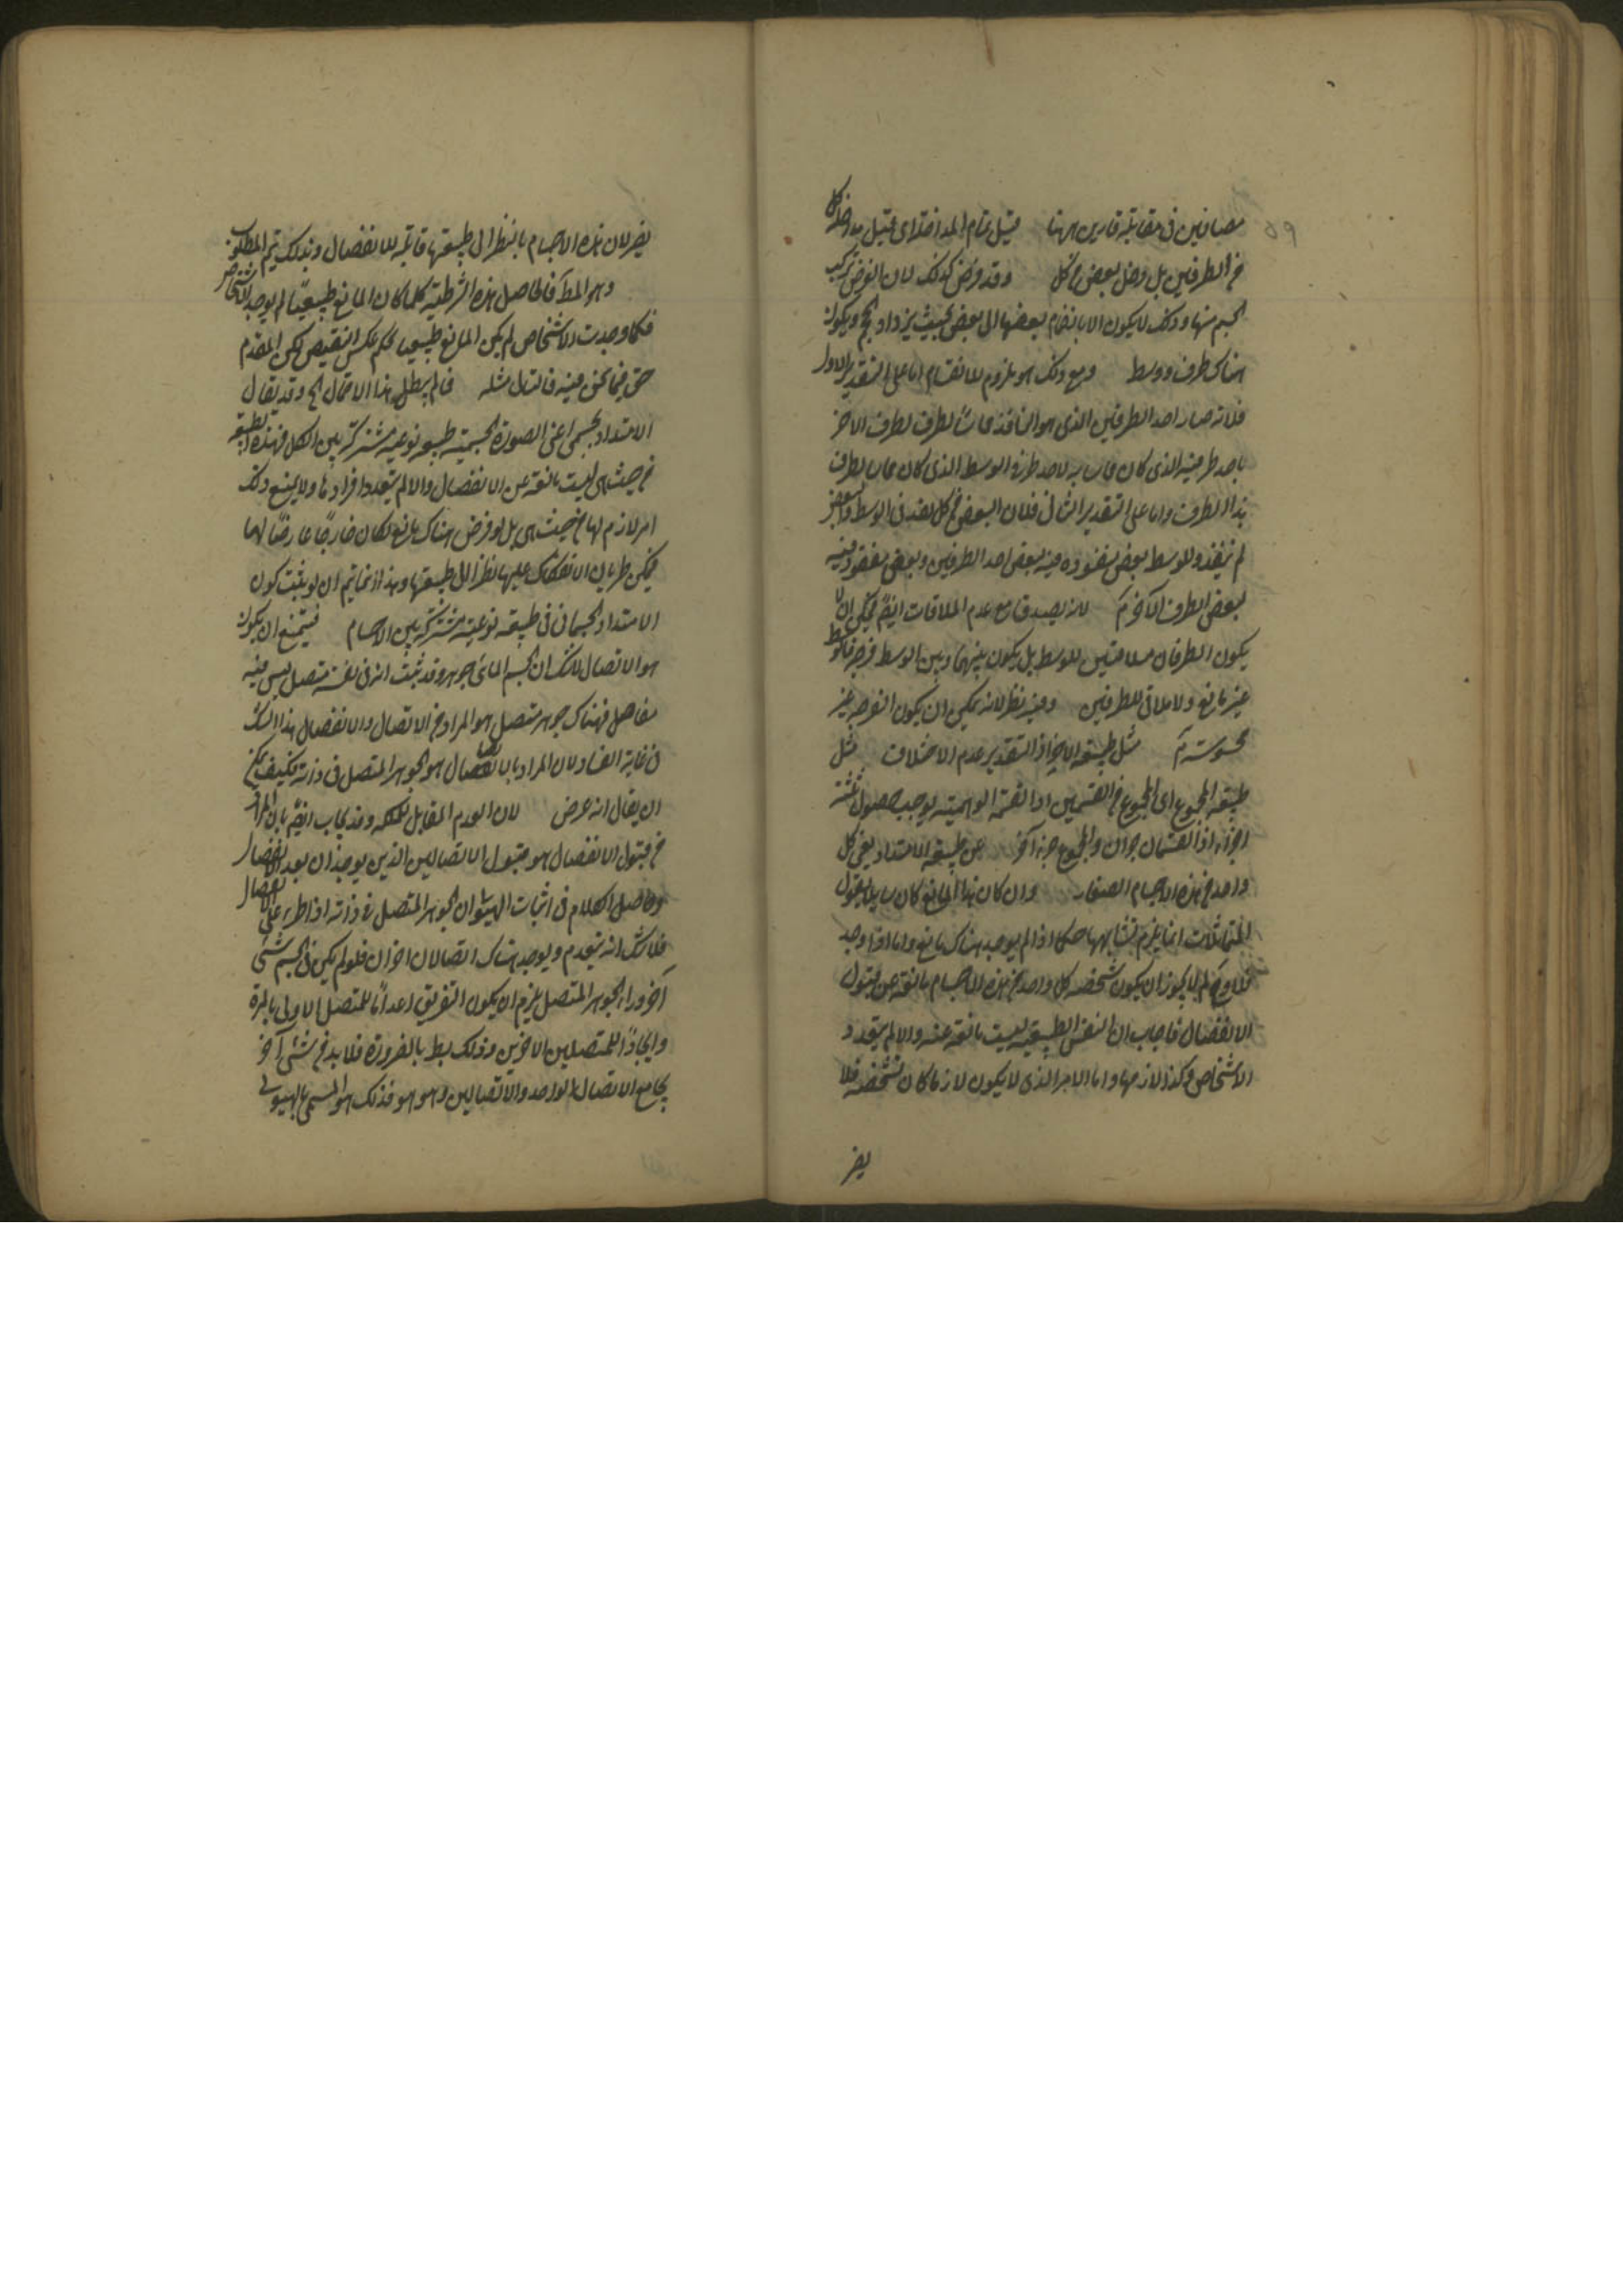 ٥٩
مصادفين فى مقابلة قارين ههنا قبل تمام المداخلة اى قبل مداخلة كل
من الطرفين بل دخل بعض من كل وقد فرض كذلك لان الغرض تركب
الجسم منها وذلك لا يكون الا بانضمام بعضها الى بعض بحيث يزداد الحجم ويكون
هناك طرف ووسط ومع ذلك هو ملزوم للانقسام اما على التقدير الاول
فلانه صار احد الطرفين الذى هو النافذ مماسا لطرف لطرف الاخر
باحد طرفيه الذى كان مماسا به لاحد طرفى الوسط الذى كان مماسا لطرف
هذا الطرف واما على التقدير الثانى فلان البعض من كل نفذ فى الوسط والبعض
لم ينفذ وللوسط بعض منفوذ فيه لبعض احد الطرفين وبعض منفوذ فيه
لبعض الطرف الآخر لانه يصدق مع عدم الملاقات ايضا فيمكن ان لا
يكون الطرفان ملاقيين للوسط بل يكون بينهما وبين الوسط فرجة فالوسط
غير مانع ولا ملاق للطرفين وفيه نظر لانه يمكن ان يكون الفرجة غير
محسوسة مثل طبيعة الاجزاء اذ التقدير عدم الاختلاف مثل
طبيعة المجموع اى المجموع من القسمين اذ القسمة الوهمية يوجب حصول ثلثة
اجزاء اذ القسمان جزان والمجموع جزء آخر عن طبيعة الامتداد يعنى كل
واحد من هذه الاجسام الصغار وان كان هذا المانع كان سايلا يقول
المتماثلات انما يلزم تشابهها حكما اذا لم يوجد هناك مانع واما اذا وجد
فلا ولم لا يجوز ان يكون شخصه كل واحد من هذه الاجسام مانعة عن قبول
الانفصال فاجاب ان النفس الطبيعية ليست مانعة عنه والا لم يتعدد
الاشخاص وكذا لازمها واما الامر الذى لا يكون لازما كان تشخصه فلا
يضر
يضر لان هذه الاجسام بالنظر الى طبيعتها قابلة للانفصال وبذلك تم المطلوب
وهو المط فالحاصل هذه الشرطية كلما كان المانع طبيعيا لم يوجد الاشخاص
فكلما وجدت الاشخاص لم يكن المانع طبيعيا بحكم عكس النقيض لكن المقدم
حق فيما نحن فيه فالتالى مثله فلم يبطل هذا الاحتمال الخ وقد يقال
الامتداد الجسمى اعنى الصورة الجسمية طبيعة نوعية مشتركة بين الكل فهذه الطبيعة
من حيث هى ليست مانعة عن الانفصال والا لم يتعدد افرادها ولا يمنع ذلك
امر لازم لها من حيث هى بل لو فرض هناك مانع لكان خارجا عارضا لها
فيمكن طريان الانفكاك عليها نظرا الى طبيعتها وهذا انما يتم ان لو يثبت كون
الامتداد الجسمانى فى طبيعة نوعية مشتركة بين الاجسام فيمتنع ان يكون
هو الاتصال لا شك ان الجسم المائى جوهر وقد ثبت انه فى نفسه متصل ليس فيه
مفاصل فهناك جوهر متصل هو المراد من الاتصال والانفصال هذا الشك
فى غاية الفساد لان المراد بالاتصال هو الجوهر المتصل فى ذاته فكيف يمكن
ان يقال انه عرض لان العدم المقابل للملكة وقد يجاب ايضا بان المراد
من قبول الانفصال هو قبول الاتصالين الذين يوجدان بعد الانفصال
وحاصل الكلام فى اثبات الهيولى ان الجوهر المتصل فى ذاته اذا طرء عليه الانفصال
فلا شك انه ينعدم ويوجد هناك اتصالان اخران فلو لم يكن فى الجسم شئ
آخر وراء الجوهر المتصل يلزم ان يكون التفريق اعداما للمتصل الاولى بالمرة
وايجادا للمتصلين الاخرين وذلك بط بالضرورة فلا بد من شئ آخر
يجامع الاتصال الواحد والاتصالين وهو هو فذلك هو المسمى بالهيولى